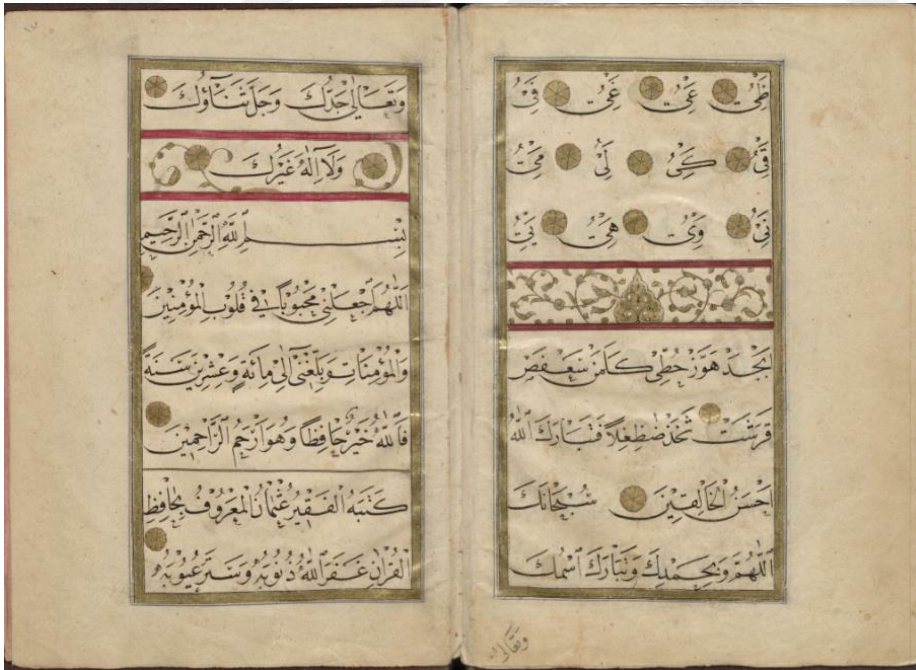 ظى عى غى فى
قى كى لى مى
نى وى هى يى
اَبْجَدْ هَوَّزْ حُطِّى كَلَمَنْ سَعْفَصْ
قَرَشَتْ ثَخَذْ ضَظِغْلاً فَتَبَارَكَ اللّٰهُ
اَحْسَنُ الْخَالِقِينَ سُبْحَانَكَ
اَللّٰهُمَّ وَبِحَمْدِكَ وَتَبَارَكَ اسْمُكَ
وتعالى
وَتَعَالٰى جَدُّكَ وَجَلَّ ثَنَاۤؤُكَ
وَلَاۤ اِلٰهَ غَيْرُكَ
بِسْمِ اللّٰهِ الرَّحْمٰنِ الرَّحِيمِ
اَللّٰهُمَّ اجْعَلْنِى مَحْبُوبًا فِى قُلُوبِ الْمُؤْمِنِينَ
وَالْمُؤْمِنَاتِ وَبَلِّغْنِى اِلٰى مِائَةٍ وَعِشْرِينَ سَنَةً
فَاللّٰهُ خَيْرٌ حَافِظًا وَهُوَ اَرْحَمُ الرَّاحِمِينَ
كَتَبَهُ الْفَقِيرُ عُثْمَانُ الْمَعْرُوفُ بِحَافِظِ
الْقُرْاٰنِ غَفَرَ اللّٰهُ ذُنُوبَهُ وَسَتَرَ عُيُوبَهُ